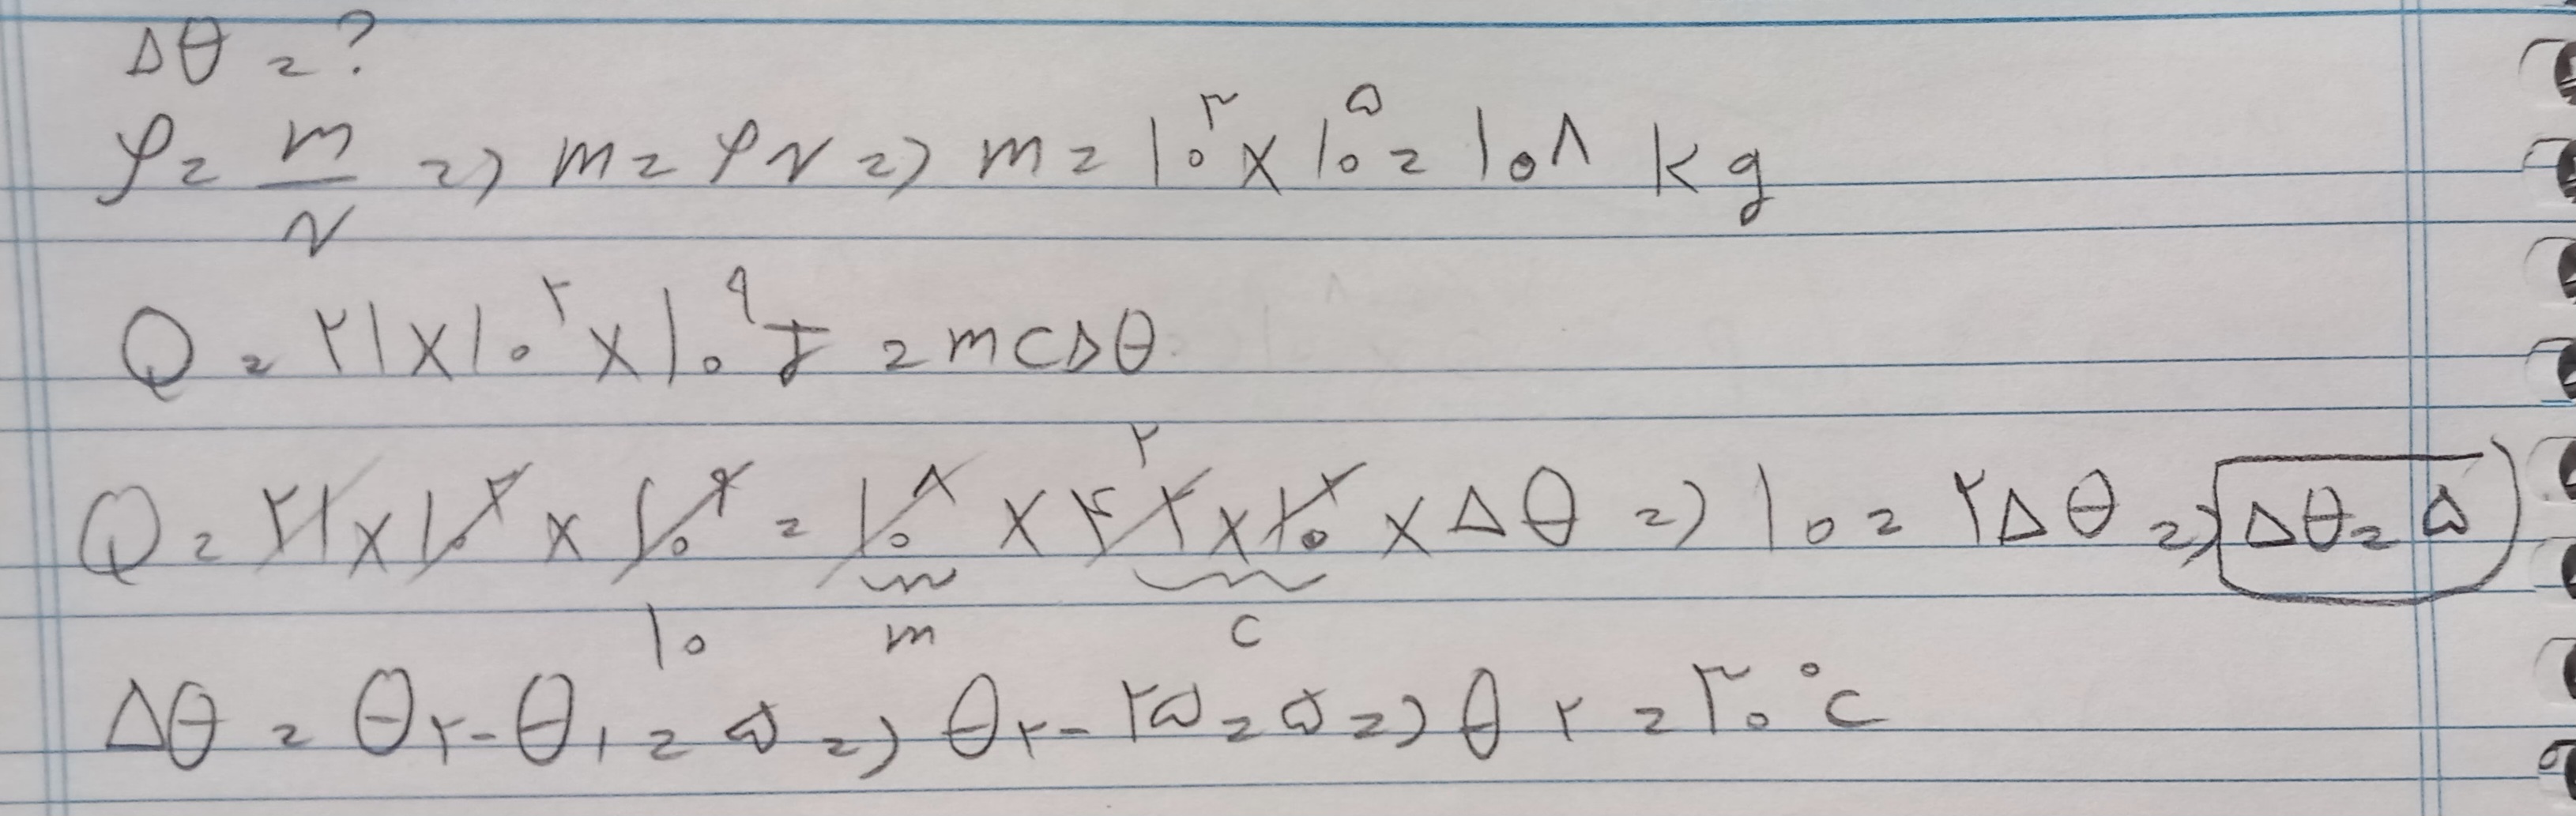 Δθ = ?
ρ = m/V => m = ρV => m = ۱۰^۳ × ۱۰^۵ = ۱۰^۸ kg
Q = ۲۱ × ۱۰^۲ × ۱۰^۹ J = mcΔθ
Q = ۲۱ × ۱۰^۲ × ۱۰^۹ = ۱۰^۸ × ۴۲ × ۱۰^۲ × Δθ => ۱۰ = ۲Δθ => Δθ = ۵
۲
۱۰ m c
Δθ = θ۲ - θ۱ = ۵ => θ۲ - ۲۵ = ۵ => θ۲ = ۳۰°C